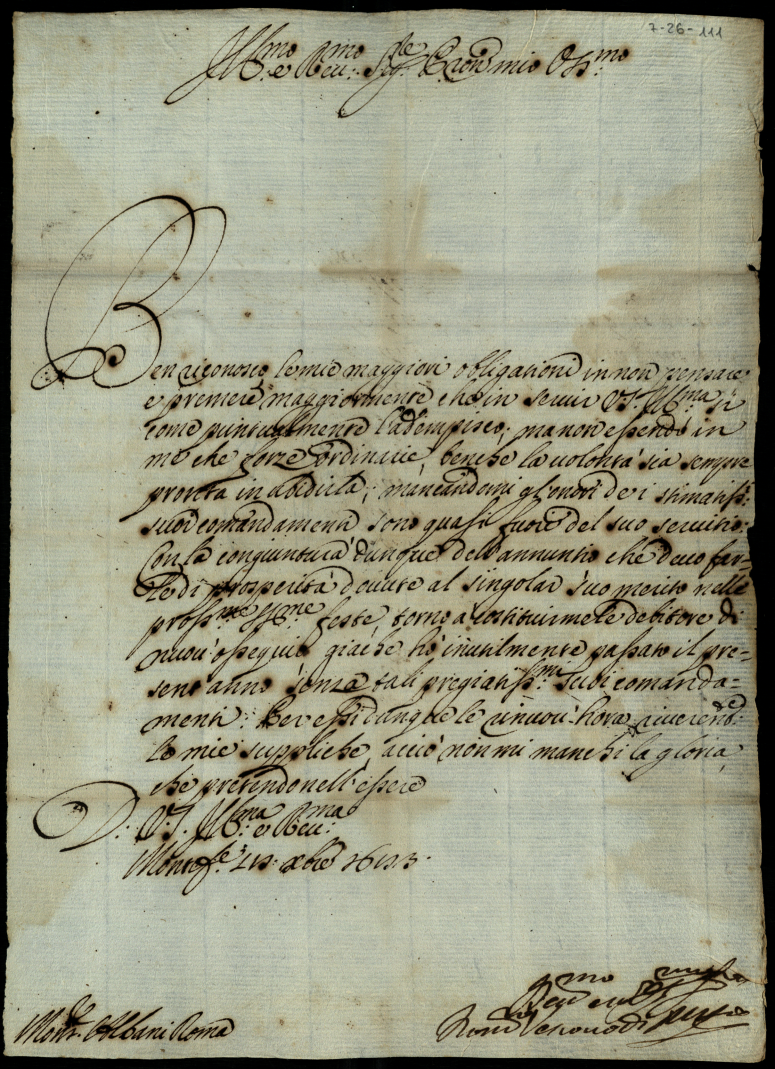 7-26-111
Ill.mo e Reu.mo Sig.re Pron mio Oss.mo
Ben riconosco le mie maggiori obligationi in non pensare
e premere maggiormente che in seruir V.S. Ill.ma si
come puntualmente l'adempisco; ma non essendo in
me che forze ordinarie, benche la uolontà sia sempre
pronta in obidirla; mancandomi gl'onori de i stimatiss:
suoi comandamenti sono quasi fuori del suo seruitio.
Con la congiuntura dunque dell'annuntio che deuo far-
le di prosperità douute al singolar suo merito nelle
pross.me ss.me feste, torno a costituirmele debitore di
nuoui ossequij giache hò inutilmente passato il pre-
sente anno senza tali pregiatiss.mi suoi comanda-
menti. Per essi dunque le rinuouo hora riuerente
le mie suppliche, acciò non mi manchi la gloria,
che pretendo nell'essere
D. V.S. Ill.ma e Reu.ma
Montef.e xbre
Mons.r Albani Roma